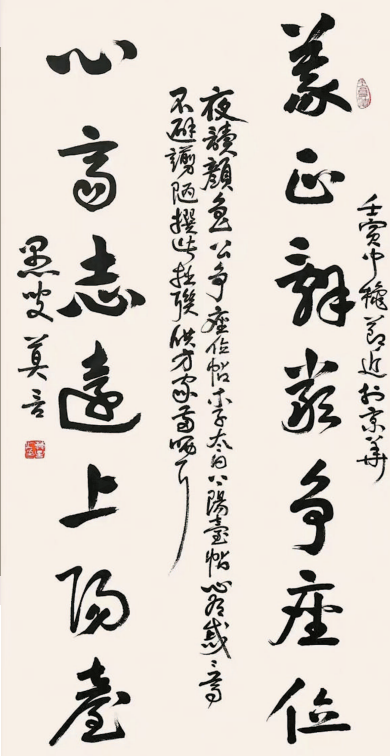 壬寅中穐節近於京華
義正辭嚴争座位
夜讀顏魯公争座位帖李太白上陽臺帖心有感
不避譾陋撰此拙聯供方家哂
心高志遠上陽臺
愚叟莫言